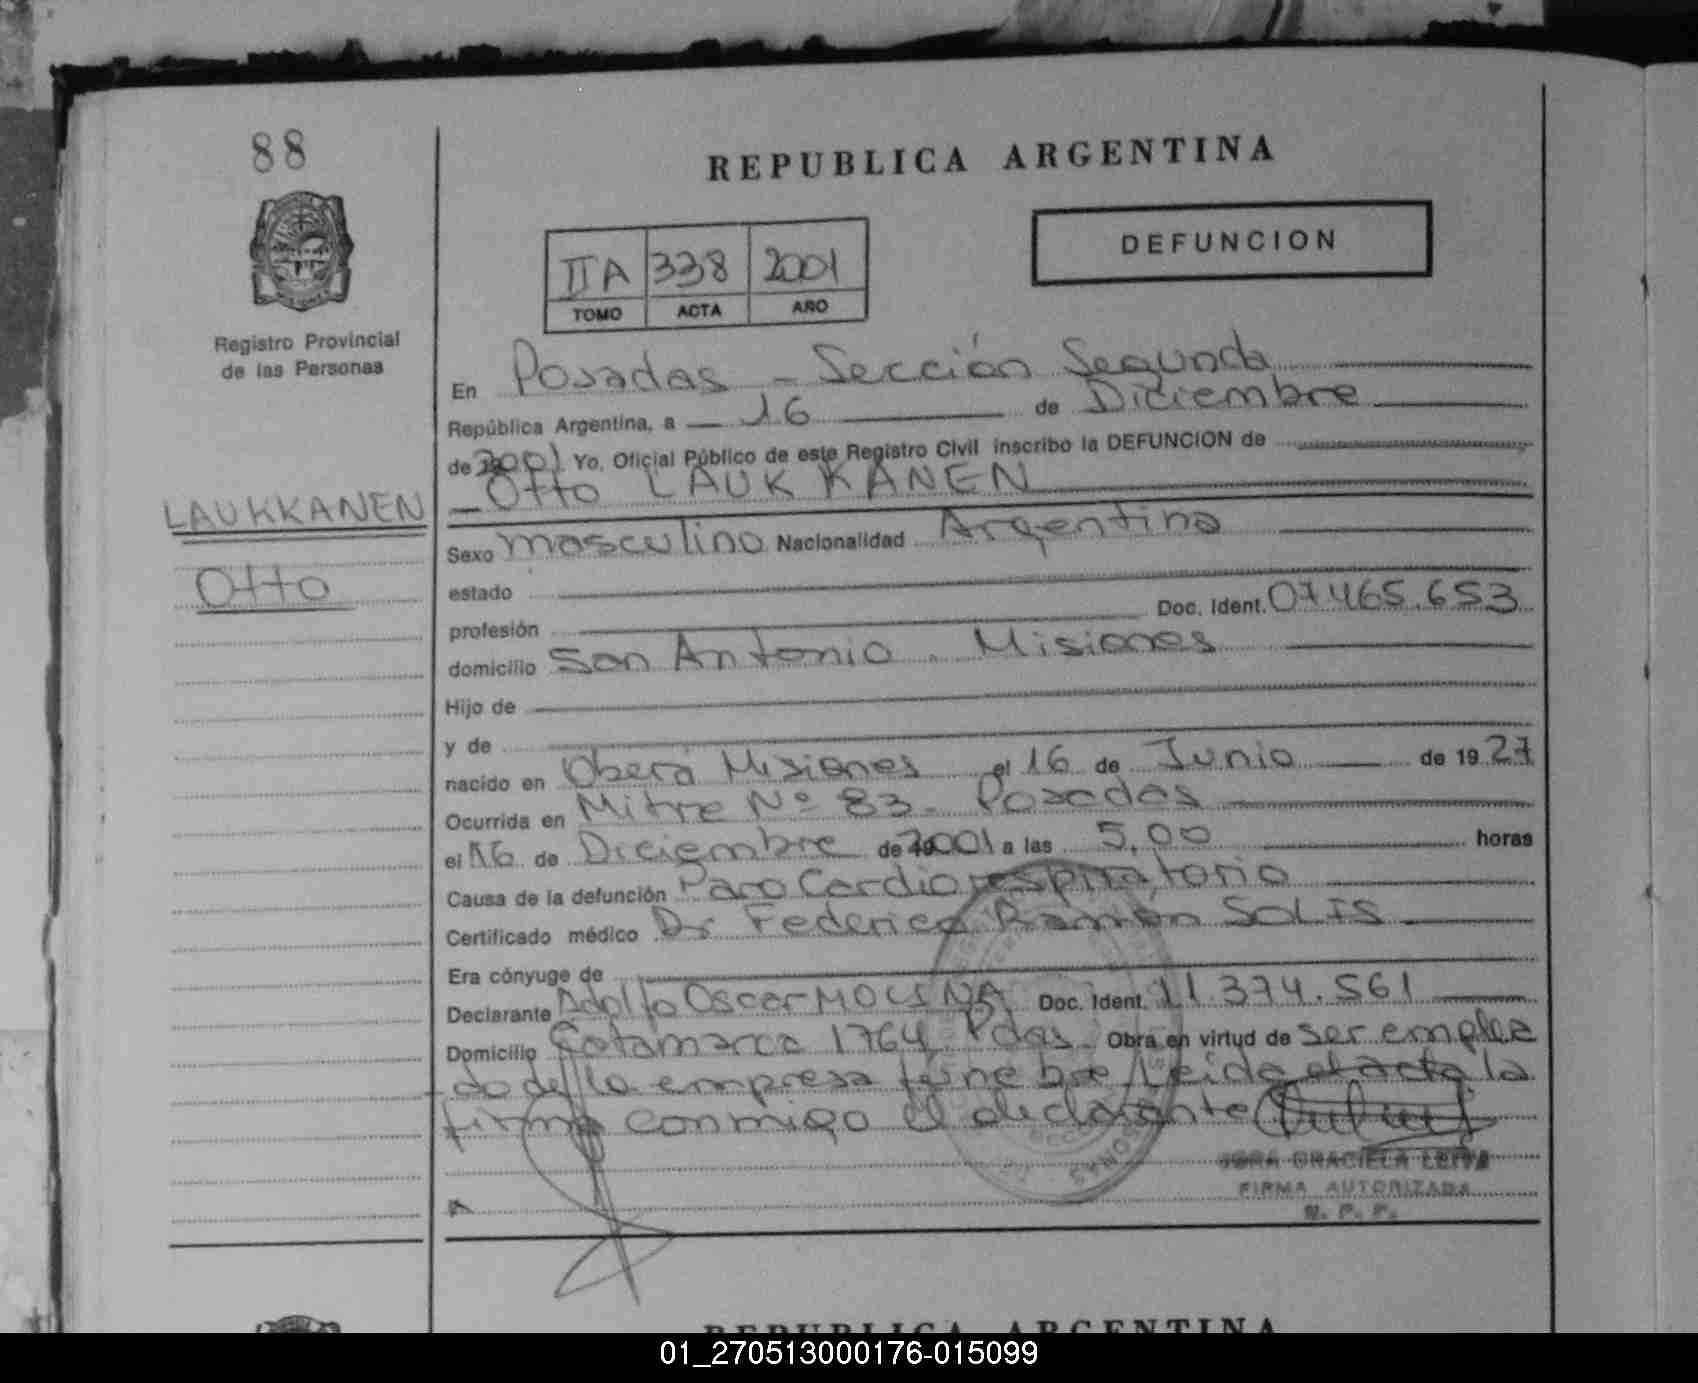 88
REPUBLICA ARGENTINA
DEFUNCION
IIA 338 2001
TOMO ACTA AÑO
Registro Provincial
de las Personas
En Posadas - Sección Segunda
República Argentina, a 16 de Diciembre
de 2001 Yo, Oficial Público de este Registro Civil inscribo la DEFUNCION de
Otto LAUKKANEN
LAUKKANEN
Otto
Sexo masculino Nacionalidad Argentina
estado
profesión Doc. Ident. 07.465.653
domicilio San Antonio. Misiones
Hijo de
y de
nacido en Oberá Misiones el 16 de Junio de 1927
Ocurrida en Mitre Nº 83 - Posadas
el 16 de Diciembre de 2001 a las 5,00 horas
Causa de la defunción Paro Cardiorespiratorio
Certificado médico Dr Federico Ramón SOLIS
Era cónyuge de
Declarante Adolfo Oscar MOLINA Doc. Ident. 11.374.561
Domicilio Catamarca 1764 Pdas. Obra en virtud de ser emplea
do de la empresa fúnebre. Leida el acta la
firma conmigo el declarante
GRACIELA LEIVA
FIRMA AUTORIZADA
R. P. P.
REPUBLICA ARGENTINA
01_270513000176-015099